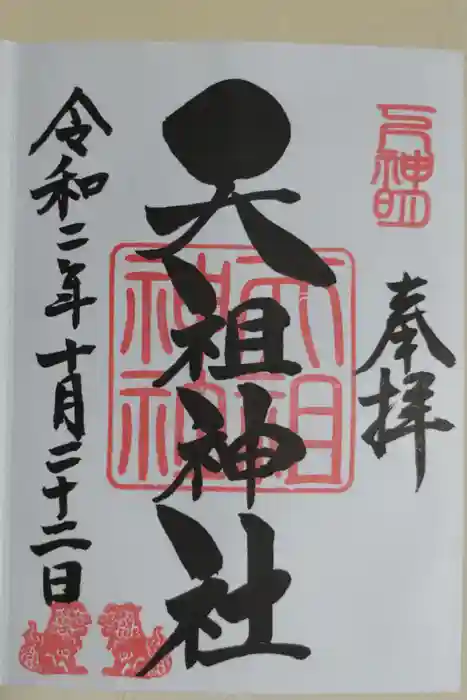 奉拝
天祖神社
天祖神社
令和二年十月二十二日